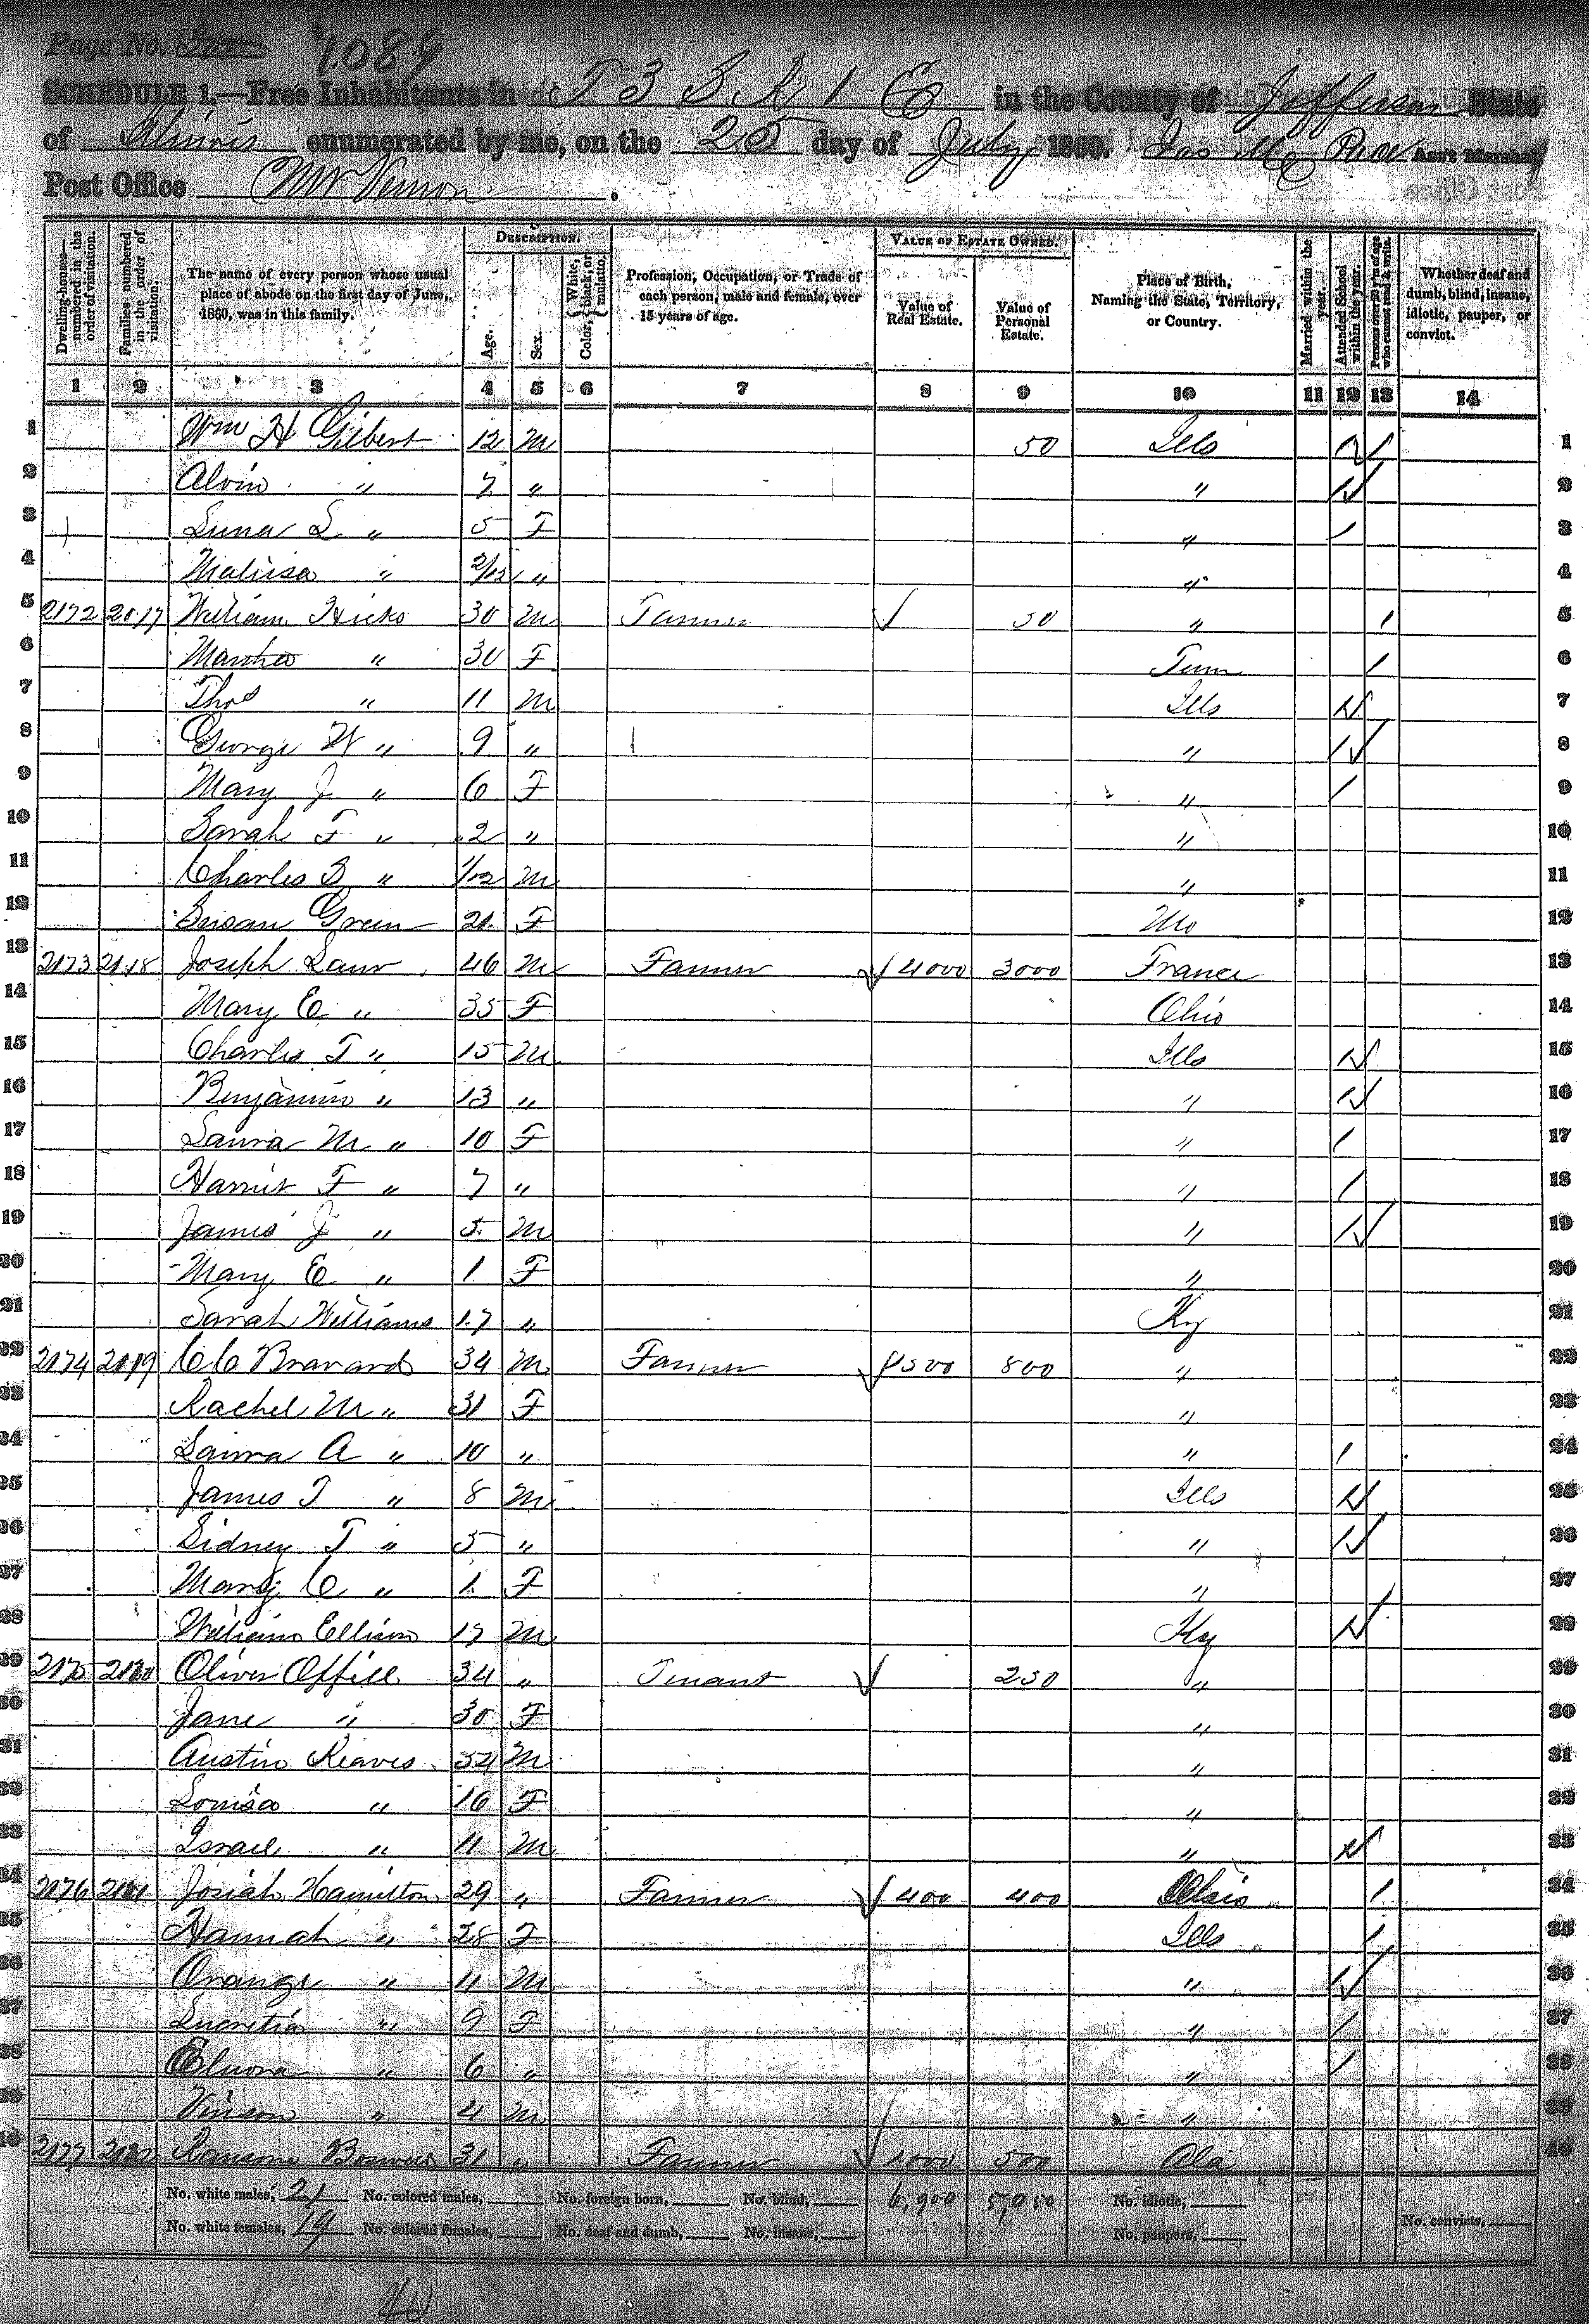 Page No. 1089
SCHEDULE 1.—Free Inhabitants in T 3 S R 1 E in the County of Jefferson State
of Illinois enumerated by me, on the 25 day of July 1860. Jas M Pace Ass't Marshal
Post Office Mt Vernon.
DESCRIPTION. VALUE OF ESTATE OWNED.
Dwelling-houses—numbered in the order of visitation. Families numbered in the order of visitation. The name of every person whose usual place of abode on the first day of June, 1860, was in this family. Age. Sex. Color, {White, black, or mulatto. Profession, Occupation, or Trade of each person, male and female, over 15 years of age. Value of Real Estate. Value of Personal Estate. Place of Birth, Naming the State, Territory, or Country. Married within the year. Attended School within the year. Persons over 20 y'rs of age who cannot read & write. Whether deaf and dumb, blind, insane, idiotic, pauper, or convict.
1 2 3 4 5 6 7 8 9 10 11 12 13 14
1 Wm H Gilbert 12 M 50 Ills 1 1
2 Alvin " 7 " " 1 2
3 L " 5 F " 1 3
4 Malissa " 2/12 " " 4
5 2172 2017 William Hicks 30 M Farmer 50 " 1 5
6 Martha " 30 F Tenn 1 6
7 Thos " 11 M Ills 1 7
8 George W " 9 " " 1 8
9 Mary J " 6 F " 1 9
10 Sarah F " 2 " " 10
11 Charles S " 1/12 M " 11
12 Susan Green 21 F Mo 12
13 2173 2118 Joseph 46 M Farmer 4000 3000 France 13
14 Mary E " 35 F Ohio 14
15 Charles T " 15 M Ills 1 15
16 Benjamin " 13 " " 1 16
17 Laura M " 10 F " 1 17
18 Harriet F " 7 " " 1 18
19 James J " 5 M " 1 19
20 Mary E " 1 F " 20
21 Sarah Williams 17 " Ky 21
22 2174 2119 C C Bravard 34 M Farmer 1500 800 " 22
23 Rachel M " 31 F " 23
24 Laura A " 10 " " 1 24
25 James T " 8 M Ills 1 25
26 Sidney T " 5 " " 1 26
27 Mary C " 1 F " 27
28 William Ellison 17 M Ky 1 28
29 2175 2120 Oliver Offill 34 " Tenant 250 " 29
30 Jane " 30 F " 30
31 Austin Reaves 54 M " 31
32 Louisa " 16 F " 32
33 Israel " 11 M " 1 33
34 2176 2121 Josiah Hamilton 29 " Farmer 400 400 Ohio 1 34
35 Hannah " 28 F Ills 1 35
36 Orange " 11 M " 1 36
37 Lucretia " 9 F " 1 37
38 Elnora " 6 " " 1 38
39 Vinson " 4 M " 39
40 2177 2122 Ransom Boswell 31 " Farmer 1000 500 Ala 40
No. white males, 21 No. colored males, No. foreign born, No. blind, 6,900 5,050 No. idiotic,
No. white females, 19 No. colored females, No. deaf and dumb, No. insane, No. paupers, No. convicts,
40